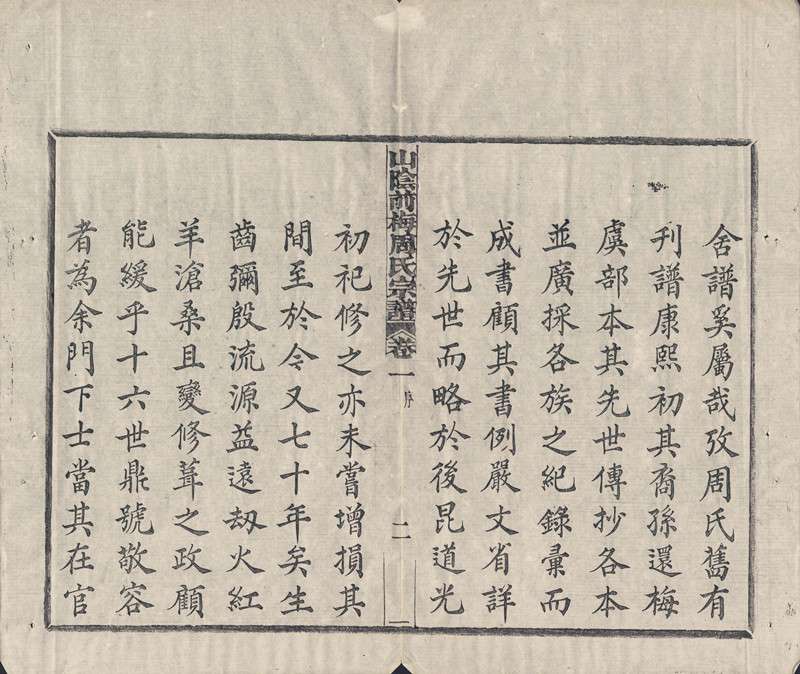 舍譜奚屬哉攷周氏舊有
刊譜康熙初其裔孫還梅
虞部本其先世傳抄各本
並廣採各族之紀錄彙而
成書顧其書例嚴文省詳
於先世而略於後昆道光
山陰前梅周氏宗譜 卷一 序 二
初祀修之亦未嘗增損其
間至於今又七十年矣生
齒彌殷流源益遠刼火紅
羊滄桑且變修葺之政顧
能緩乎十六世鼎號敬容
者為余門下士當其在官